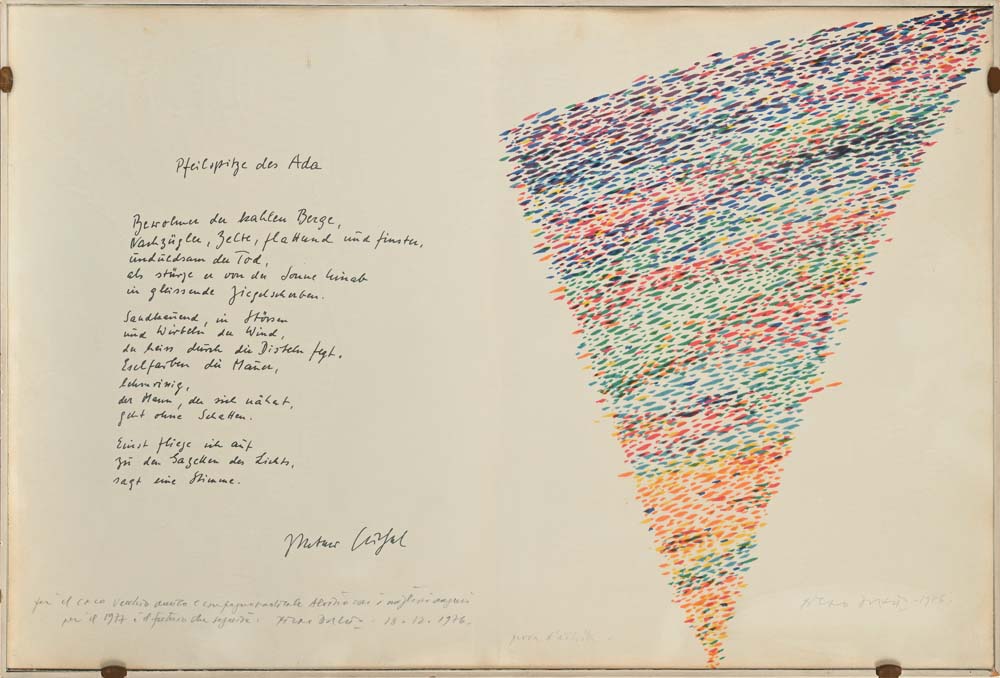 Pfeilspitze des Ada
Bewohner der kahlen Berge,
Nachzügler, Zelte, flatternd und finster,
unduldsam der Tod,
als stürze er von der Sonne hinab
in gleissende Ziegelscherben.
Sandkauend, in Stössen
und Wirbeln der Wind,
der heiss durch die Disteln fegt.
Eselfarben die Mauer,
lehmrissig,
der Mann, der sich nähert,
geht ohne Schatten.
Einst fliege ich auf
zu den Gazellen des Lichts,
sagt eine Stimme.
per il caro vecchio amico e con i migliori auguri
per il 1977 e il futuro che seguirà. Piero Dorazio - 18.12.1976.
prova d'artista
Piero Dorazio - 1976.